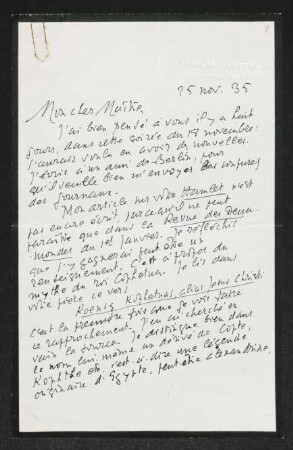 25 nov. 35
Mon cher Maître,
J'ai bien pensé à vous il y a huit
jours, dans cette soirée du 18 novembre:
j'aurais voulu en avoir des nouvelles.
J'écris à un ami de Berlin, pour
qu'il veuille bien m'envoyer les coupures
des journaux.
Mon article sur votre Hamlet n'est
pas encore écrit, parce qu'il ne peut
paraître que dans la Revue des Deux-
mondes du 1er janvier. Je réfléchis
que j'y gagnerai peut-être un
renseignement. C'est à propos du
mythe du roi Cophetua. Je lis dans
votre texte ce vers
Koenig Kophetuas, alias Jesus Christi.
C'est la première fois que je vois faire
ce rapprochement. J'en ai cherché en
vain la source. Je distingue bien dans
le nom lui-même un dérivé de Copte,
Kophthe etc. c'est-à-dire une légende
originaire d'Egypte, peut-être alexandrine,